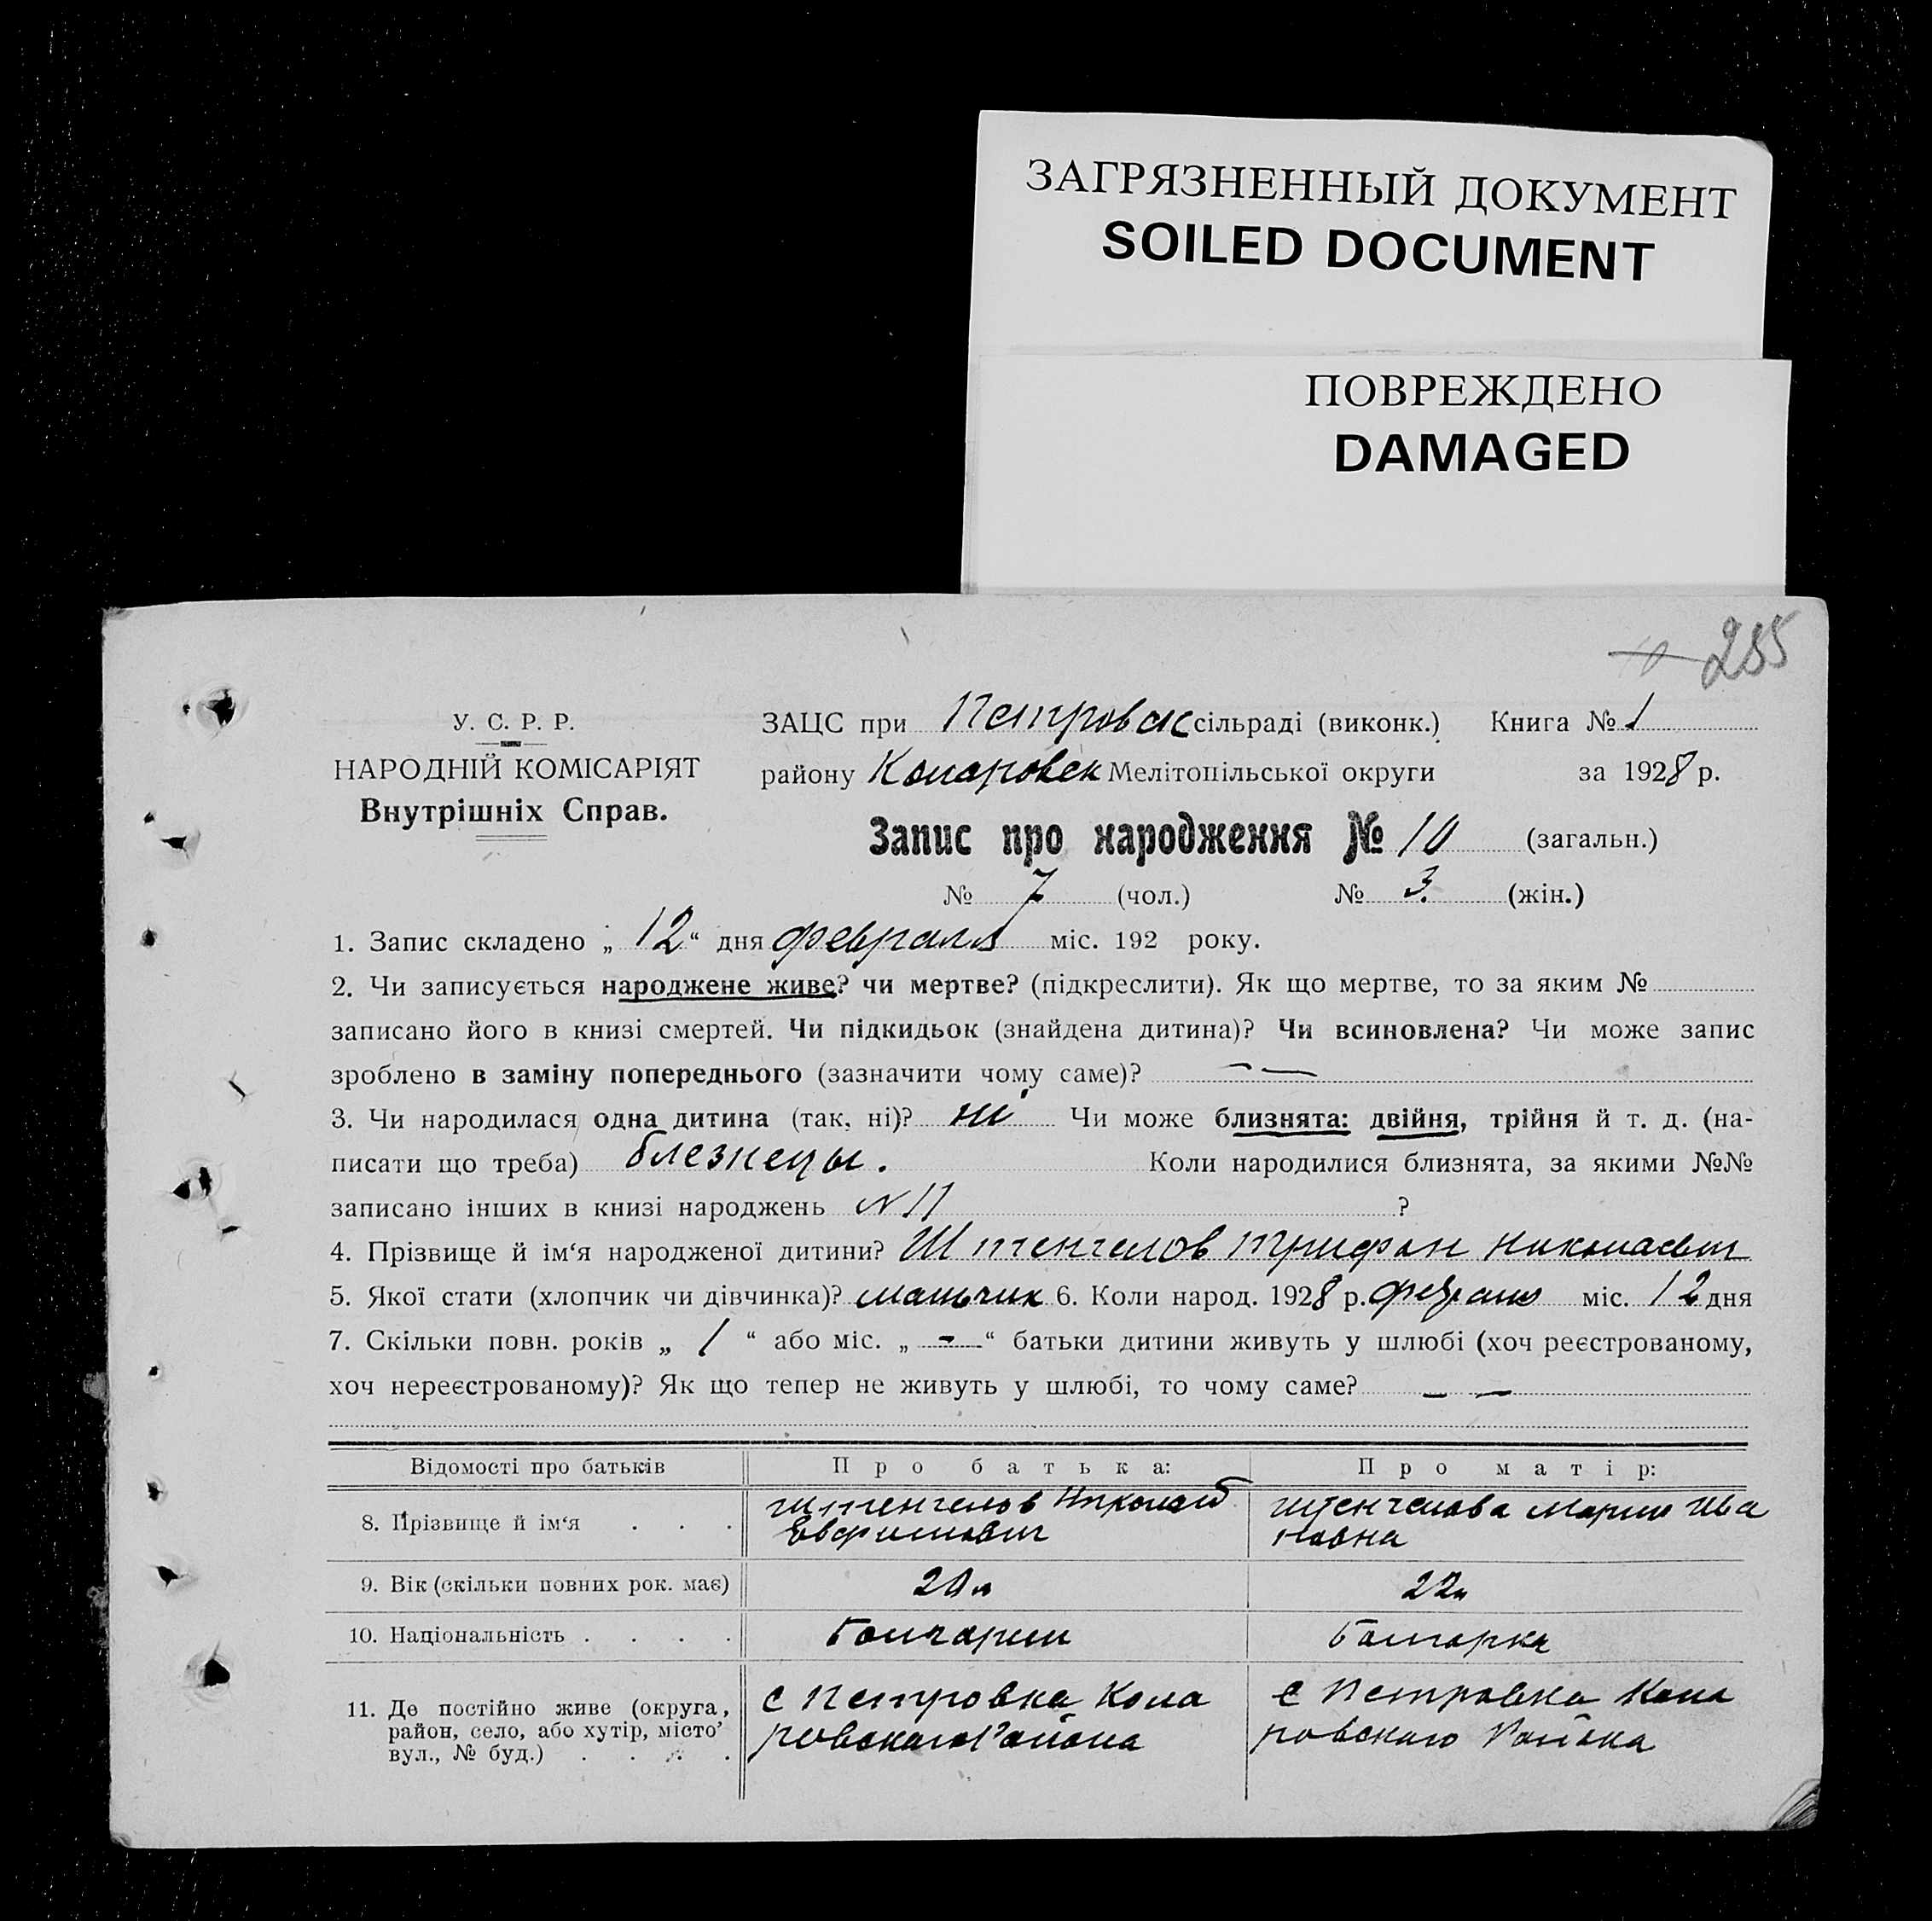 ЗАГРЯЗНЕННЫЙ ДОКУМЕНТ
SOILED DOCUMENT
ПОВРЕЖДЕНО
DAMAGED
10 255
У. С. Р. Р.
НАРОДНІЙ КОМІСАРІЯТ
Внутрішніх Справ.
ЗАЦС при Петровск сільраді (виконк.) Книга № 1
району Коларовск Мелітопільської округи за 1928 р.
Запис про народження № 10 (загальн.)
№ 7 (чол.) № 3 (жін.)
1. Запис складено „ 12 “ дня февраля міс. 192 року.
2. Чи записується народжене живе? чи мертве? (підкреслити). Як що мертве, то за яким №
записано його в книзі смертей. Чи підкидьок (знайдена дитина)? Чи всиновлена? Чи може запис
зроблено в заміну попереднього (зазначити чому саме)? — —
3. Чи народилася одна дитина (так, ні)? ні Чи може близнята: двійня, трійня й т. д. (на-
писати що треба) близнецы. Коли народилися близнята, за якими №№
записано інших в книзі народжень № 11 ?
4. Прізвище й ім‘я народженої дитини? Штенгелов Трифон Николаевич
5. Якої стати (хлопчик чи дівчинка)? мальчик 6. Коли народ. 1928 р. февраля міс. 12 дня
7. Скільки повн. років „ 1 “ або міс. „ - “ батьки дитини живуть у шлюбі (хоч реєстрованому,
хоч нереєстрованому)? Як що тепер не живуть у шлюбі, то чому саме? — —
Відомості про батьків Про батька: Про матір:
8. Прізвище й ім‘я . . . Штенгелов Николай Штенгелова Мария Ива
Евфимович новна
9. Вік (скільки повних рок. має) 20 л 22 л
10. Національність . . . . Болгарин Болгарка
11. Де постійно живе (округа, с Петровка Кола с Петровка Кола
район, село, або хутір, місто’ ровскаго Района ровскаго Района
вул., № буд.) . . . .